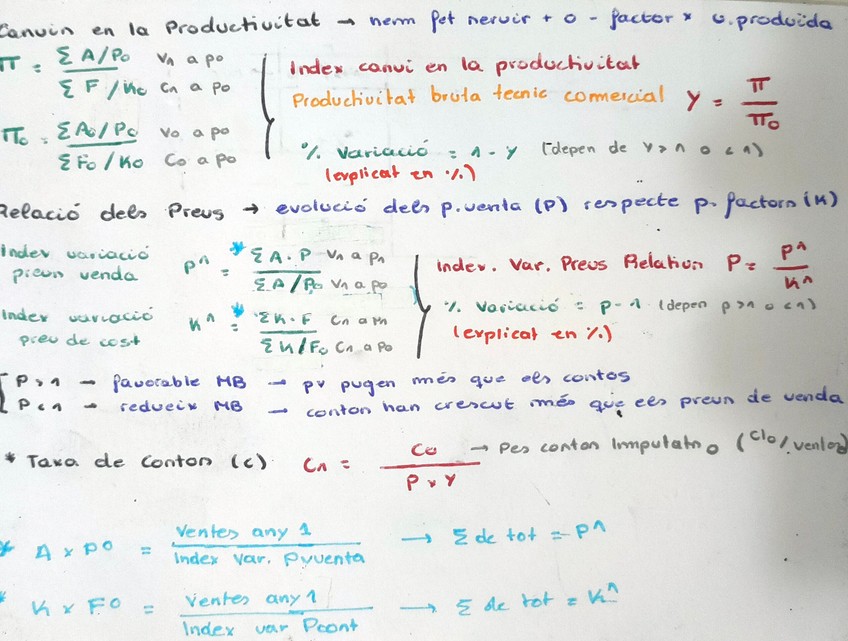 Canvin en la Productivitat → nerm fet nervir + o - factor x u.produïda
π = Σ A/Po Vn a po
Σ F/Ko Cn a po
πo = Σ Ao/Po Vo a po
Σ Fo/Ko Co a po
Index canvi en la productivitat
Productivitat bruta tecnic comercial Y = π / πo
% Variació = 1 - Y (depen de Y > 1 o < 1)
(explicat en %)
Relació dels Preus → evolució dels p.venta (P) respecte p. factors (K)
Index variació preus venda P^1 = * Σ A · P V1 a p1
Σ A/Po V1 a po
Index variació preu de cost K^1 = * Σ K · F C1 a K1
Σ K/Fo C1 a po
Index. Var. Preus Relatius P = P^1 / K^1
% Variació = P - 1 (depen p>1 o <1)
(explicat en %)
P > 1 → favorable MB → pv pugen més que els costos
P < 1 → redueix MB → costos han crescut més que els preus de venda
* Taxa de costos (c) C1 = Co / P x Y → Pes costos Imputats o (CIo/ventes)
* A x P^0 = Ventes any 1 / Index Var. Pvventa → Σ de tot = P^1
* K x F^0 = Ventes any 1 / Index var Pcont → Σ de tot = K^1